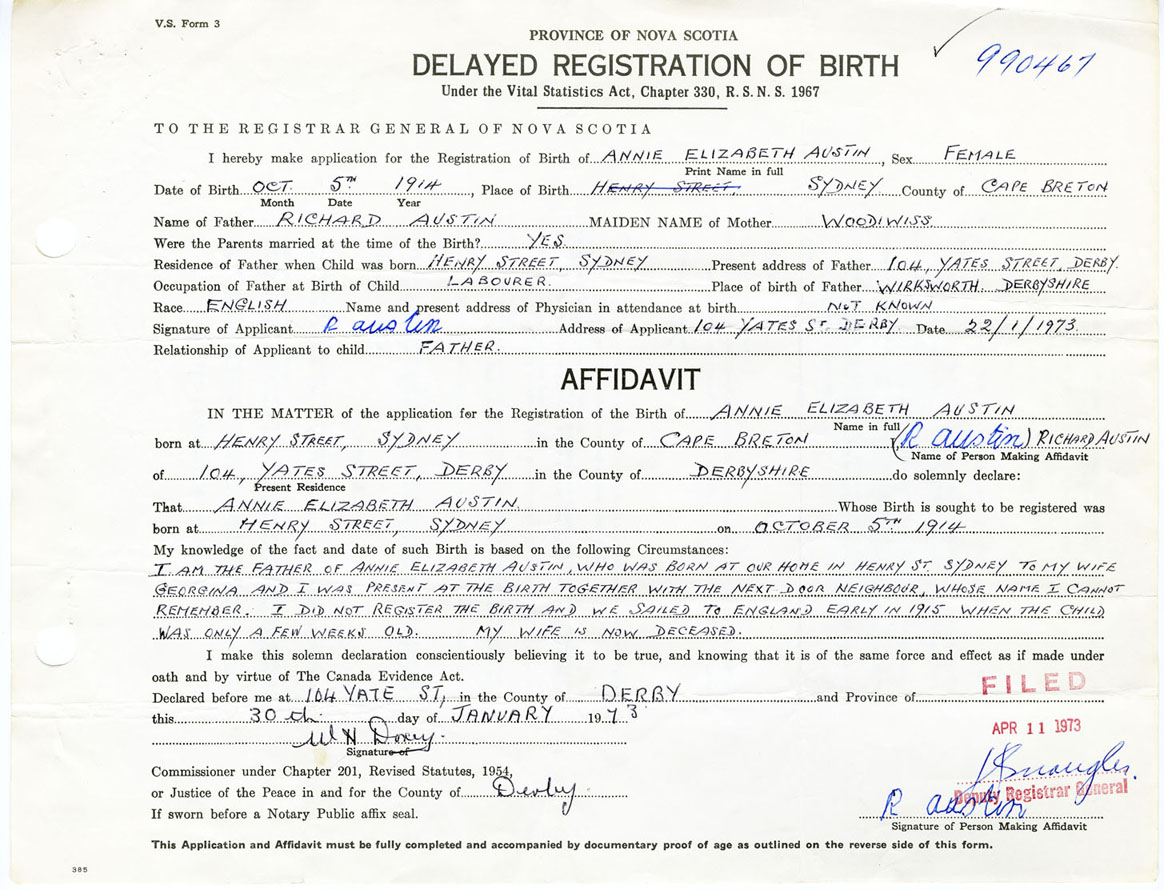 V.S. Form 3
PROVINCE OF NOVA SCOTIA
DELAYED REGISTRATION OF BIRTH
990467
Under the Vital Statistics Act, Chapter 330, R. S. N. S. 1967
TO THE REGISTRAR GENERAL OF NOVA SCOTIA
I hereby make application for the Registration of Birth of ANNIE ELIZABETH AUSTIN, Sex FEMALE
Print Name in full
Date of Birth OCT. 5TH 1914, Place of Birth HENRY STREET, SYDNEY County of CAPE BRETON
Month Date Year
Name of Father RICHARD AUSTIN MAIDEN NAME of Mother WOODIWISS.
Were the Parents married at the time of the Birth? YES.
Residence of Father when Child was born HENRY STREET, SYDNEY Present address of Father 104, YATES STREET, DERBY.
Occupation of Father at Birth of Child LABOURER. Place of birth of Father WIRKSWORTH. DERBYSHIRE
Race ENGLISH Name and present address of Physician in attendance at birth NOT KNOWN
Signature of Applicant R austin Address of Applicant 104 YATES ST DERBY. Date 22/1/1973.
Relationship of Applicant to child FATHER.
AFFIDAVIT
IN THE MATTER of the application for the Registration of the Birth of ANNIE ELIZABETH AUSTIN
Name in full
born at HENRY STREET, SYDNEY in the County of CAPE BRETON (R austin) RICHARD AUSTIN
Name of Person Making Affidavit
of 104, YATES STREET, DERBY in the County of DERBYSHIRE do solemnly declare:
Present Residence
That ANNIE ELIZABETH AUSTIN. Whose Birth is sought to be registered was
born at HENRY STREET, SYDNEY on OCTOBER 5TH 1914
My knowledge of the fact and date of such Birth is based on the following Circumstances:
I AM THE FATHER OF ANNIE ELIZABETH AUSTIN, WHO WAS BORN AT OUR HOME IN HENRY ST. SYDNEY TO MY WIFE
GEORGINA AND I WAS PRESENT AT THE BIRTH TOGETHER WITH THE NEXT DOOR NEIGHBOUR, WHOSE NAME I CANNOT
REMEMBER. I DID NOT REGISTER THE BIRTH AND WE SAILED TO ENGLAND EARLY IN 1915 WHEN THE CHILD
WAS ONLY A FEW WEEKS OLD. MY WIFE IS NOW DECEASED.
I make this solemn declaration conscientiously believing it to be true, and knowing that it is of the same force and effect as if made under
oath and by virtue of The Canada Evidence Act.
Declared before me at 104 YATE ST, in the County of DERBY and Province of
FILED
this 30th day of JANUARY 1973
APR 11 1973
W H Doxey.
Signature of
Commissioner under Chapter 201, Revised Statutes, 1954,
or Justice of the Peace in and for the County of Derby.
Deputy Registrar General
If sworn before a Notary Public affix seal.
R austin
Signature of Person Making Affidavit
This Application and Affidavit must be fully completed and accompanied by documentary proof of age as outlined on the reverse side of this form.
305